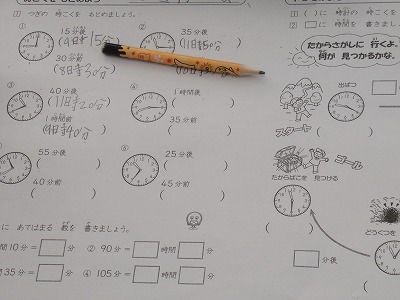 1 つぎの 時こくを もとめましょう。
①
15分後
(9時15分)
30分前
(8時30分)
②
35分後
③
40分後
(11時20分)
1時間前
④
1時間後
( )
35分前
( )
55分後
( )
40分前
( )
⑥
25分後
( )
45分前
( )
に あてはまる 数を 書きましょう。
10分= 分
② 90分= 時間 分
35分= 分
④ 105分= 時間 分
1 ( )に 時計の 時こくを
2 に 時間を 書きまし
たからさがしに 行くよ。
何が 見つかるかな。
出ぱつ
スタート
( )
ゴール
たからばこを 見つける
( )
分後
どうくつを